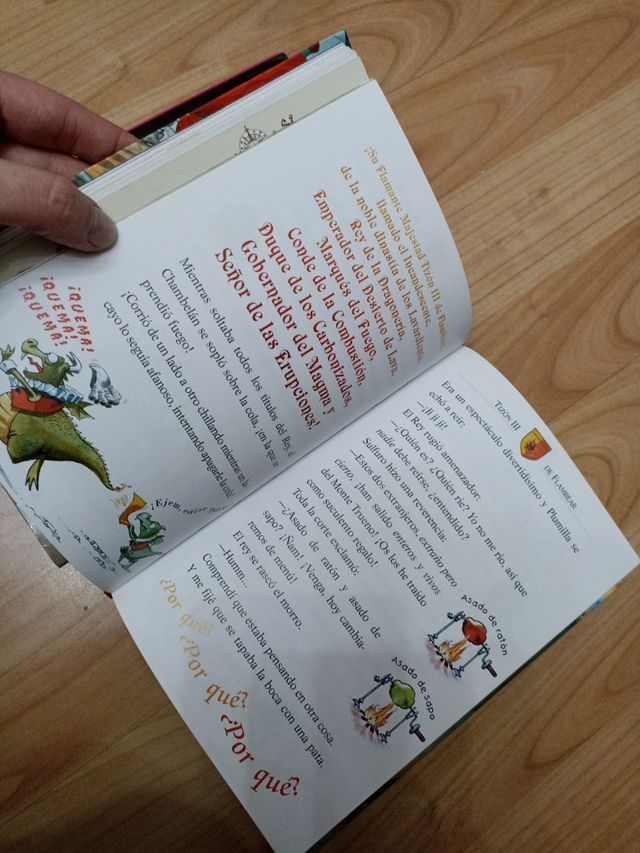 ¡Su Flamante Majestad Tizón III de Flambear,
llamado el Incandescente,
de la noble dinastía de los
Rey de la Dragonería,
Emperador del Desierto de Lava,
Marqués del Fuego,
Conde de la Combustión,
Duque de los Carbonizados,
Gobernador del Magma y
Señor de las Erupciones!
Mientras soltaba todos los títulos del Rey, el
Chambelán se sopló sobre la cola, ¡en la que se
prendió fuego!
¡Corrió de un lado a otro chillando mientras un
cayo lo seguía afanoso, intentando apagarle la cola!
¡QUEMA!
¡QUEMA!
¡QUEMA!
¡Ejem, estése
TIZÓN III
DE FLAMBEAR
Era un espectáculo divertidísimo y Plumilla se
echó a reír:
—¡Ji ji ji!
El Rey rugió amenazador:
—¿Quién es? ¿Quién ríe? Yo no me río, así que
nadie debe reírse, ¿entendido?
Sulfuro hizo una reverencia:
—Estos dos extranjeros, extraño pero
cierto, ¡han salido enteros y vivos
del Monte Trueno! ¡Os los he traído
como suculento regalo!
Toda la corte exclamó:
—¿Asado de ratón y asado de
sapo? ¡Ñam! ¡Venga, hoy cambia-
remos de menú!
El rey se rascó el morro.
—Humm...
Comprendí que estaba pensando en otra cosa.
Y me fijé que se tapaba la boca con una pata.
Asado de ratón
Asado de sapo
¿Por qué?
¿Por qué?
¿Por qué?